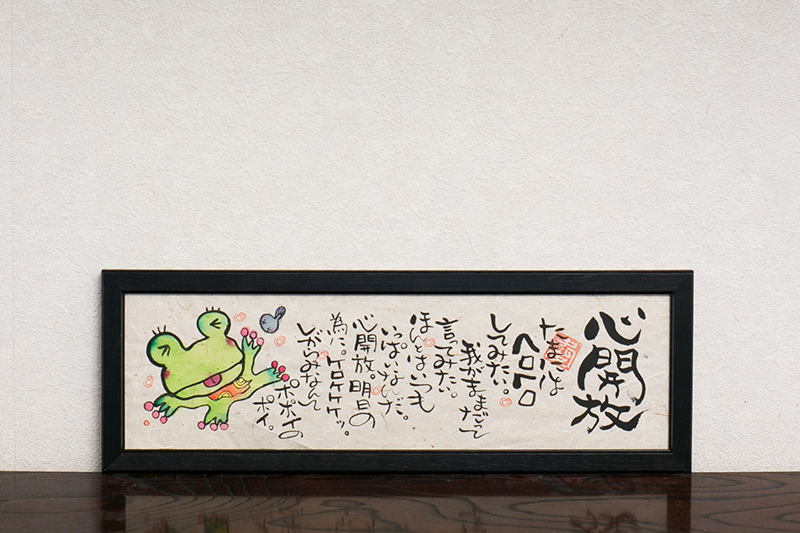 心開放
たまには
ヘロヘロ
してみたい。
我がままだって
言ってみたい。
ほんとはいつも
いっぱいなんだ。
心開放。明日の
為に。ケロケケケッ。
しがらみなんて
ポポイの
ポイ。